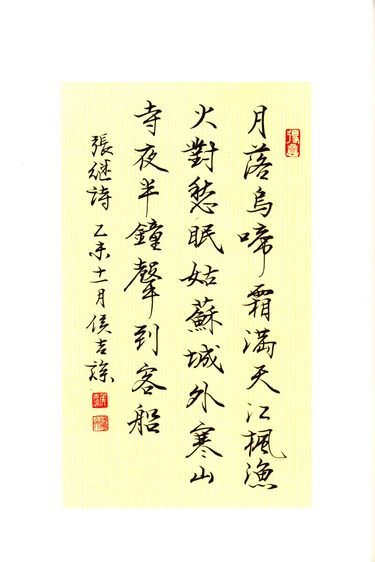 月落烏啼霜滿天江楓漁
火對愁眠姑蘇城外寒山
寺夜半鐘聲到客船
張继詩 乙未十一月侯吉諒